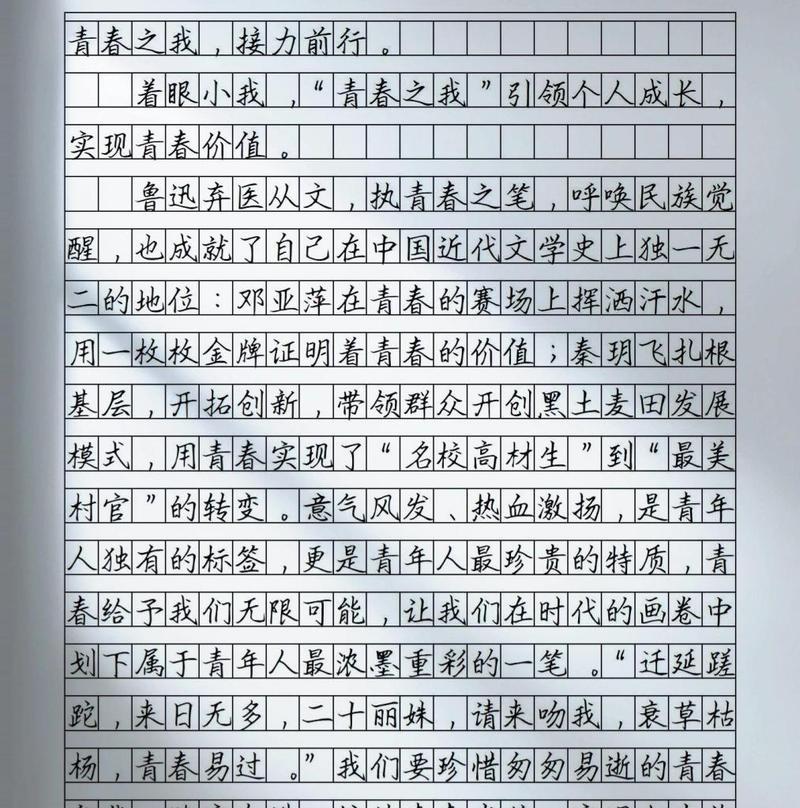 青春之我，接力前行。
着眼小我，“青春之我”引领个人成长，
实现青春价值。
鲁迅弃医从文，执青春之笔，呼唤民族觉
醒，也成就了自己在中国近代文学史上独一无
二的地位：邓亚萍在青春的赛场上挥洒汗水，
用一枚枚金牌证明着青春的价值；秦玥飞扎根
基层，开拓创新，带领群众开创黑土麦田发展
模式，用青春实现了“名校高材生”到“最美
村官”的转变。意气风发、热血激扬，是青年
人独有的标签，更是青年人最珍贵的特质，青
春给予我们无限可能，让我们在时代的画卷中
划下属于青年人最浓墨重彩的一笔。“迁延蹉
跎，来日无多，二十丽姝，请来吻我，衰草枯
杨，青春易过。”我们要珍惜匆匆易逝的青春